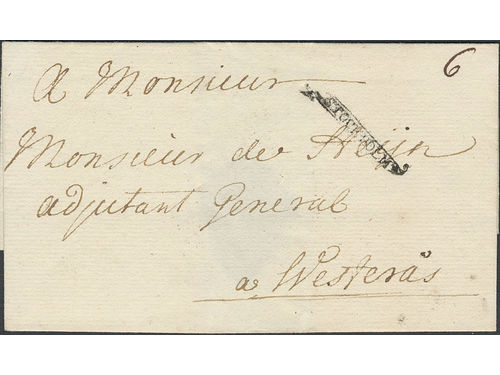 6
A Monsieur
STOCKHOLM
Monsieur de Heijn
adjutant General
a Westerås